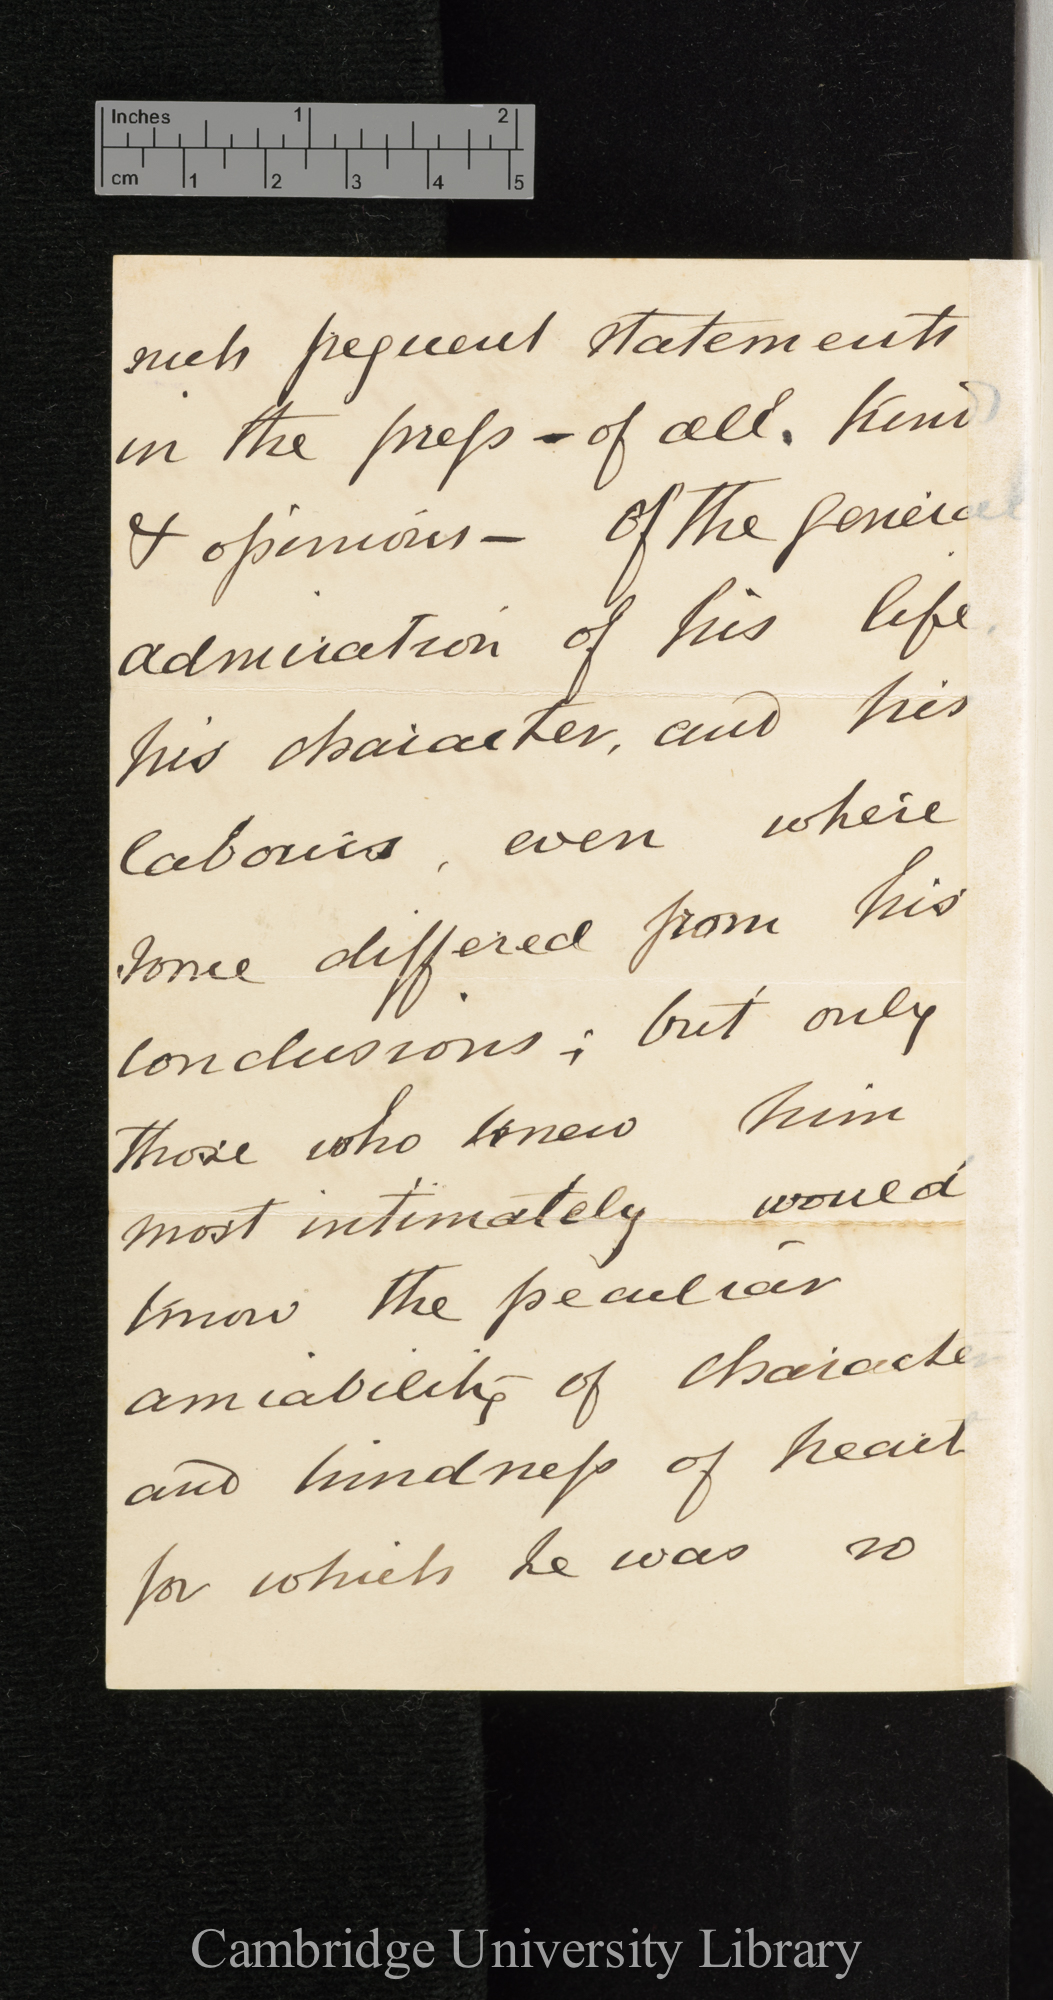 Inches 1 2
cm 1 2 3 4 5
such frequent statements
in the press - of all. kind
& opinions - of the general
admiration of his life,
his character, and his
labours, even where
some differed from his
conclusions; but only
those who knew him
most intimately would
know the peculiar
amiability of character
and kindness of heart
for which he was so
Cambridge University Library